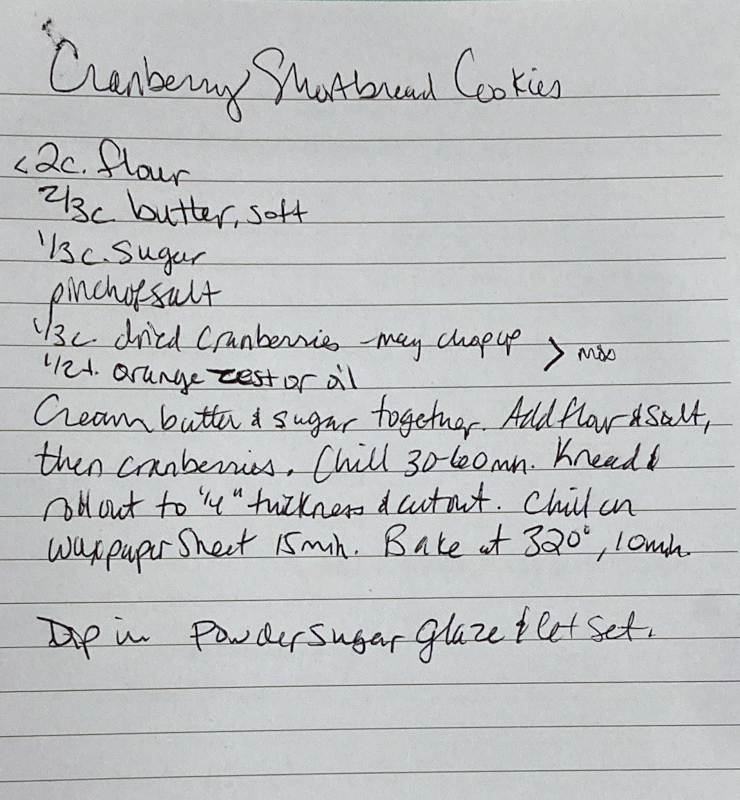 Cranberry Shortbread Cookies
<2c. flour
2/3c butter, soft
1/3c. Sugar
pinch of salt
1/3c. dried Cranberries - may chop up
1/2t. orange zest or oil
Cream butter & sugar together. Add flour & salt,
then cranberries. Chill 30-60mn. Knead &
roll out to 1/4" thickness & cut out. Chill on
waxpaper Sheet 15min. Bake at 320°, 10min.
Dip in Powder Sugar Glaze & let set.